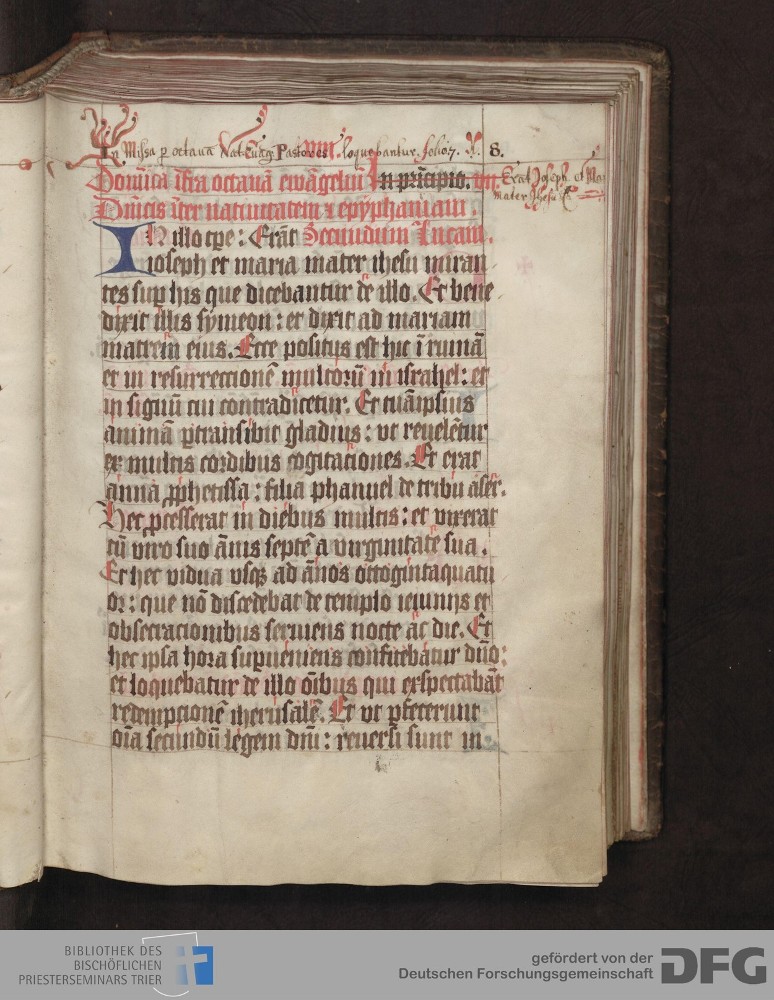 In Missa p octavā Nat. Evāg. Pastores loquebantur. folio 7. 8.
Domīca īfra octauā ewāgeliū In prīcipio. Erat Joseph et Ma
mater Jhesu
Dnīcis īter natiuitatem ⁊ epyphaniam.
IN illo tpe: Erāt Secundum Lucam.
ioseph et maria mater ihesu miran
tes sup his que dicebantur de illo. Et bene
dixit illis symeon: et dixit ad mariam
matrem eius. Ecce positus est hic ī ruinā
et in resurrectionē multorū in israhel: et
in signū cui contradicetur. Et tuāipsius
animā ptransibit gladius: ut reuelētur
ex multis cordibus cogitationes. Et erat
anna pphetissa: filia phanuel de tribu aser.
Hec pcesserat in diebus multis: et vixerat
cū viro suo ānis septē a virginitate sua.
Et hec vidua vsqꝫ ad ānos octogintaquatu
or: que nō discedebat de templo ieiuniis et
obsecracionibus seruiens nocte ac die. Et
hec ipsa hora supueniens confitebatur dño:
et loquebatur de illo oībus qui exspectabāt
redempcionē iherusalē. Et vt pfecerunt
oīa secundū legem dnī: reuersi sunt in
BIBLIOTHEK DES
BISCHÖFLICHEN
PRIESTERSEMINARS TRIER
gefördert von der
Deutschen Forschungsgemeinschaft DFG